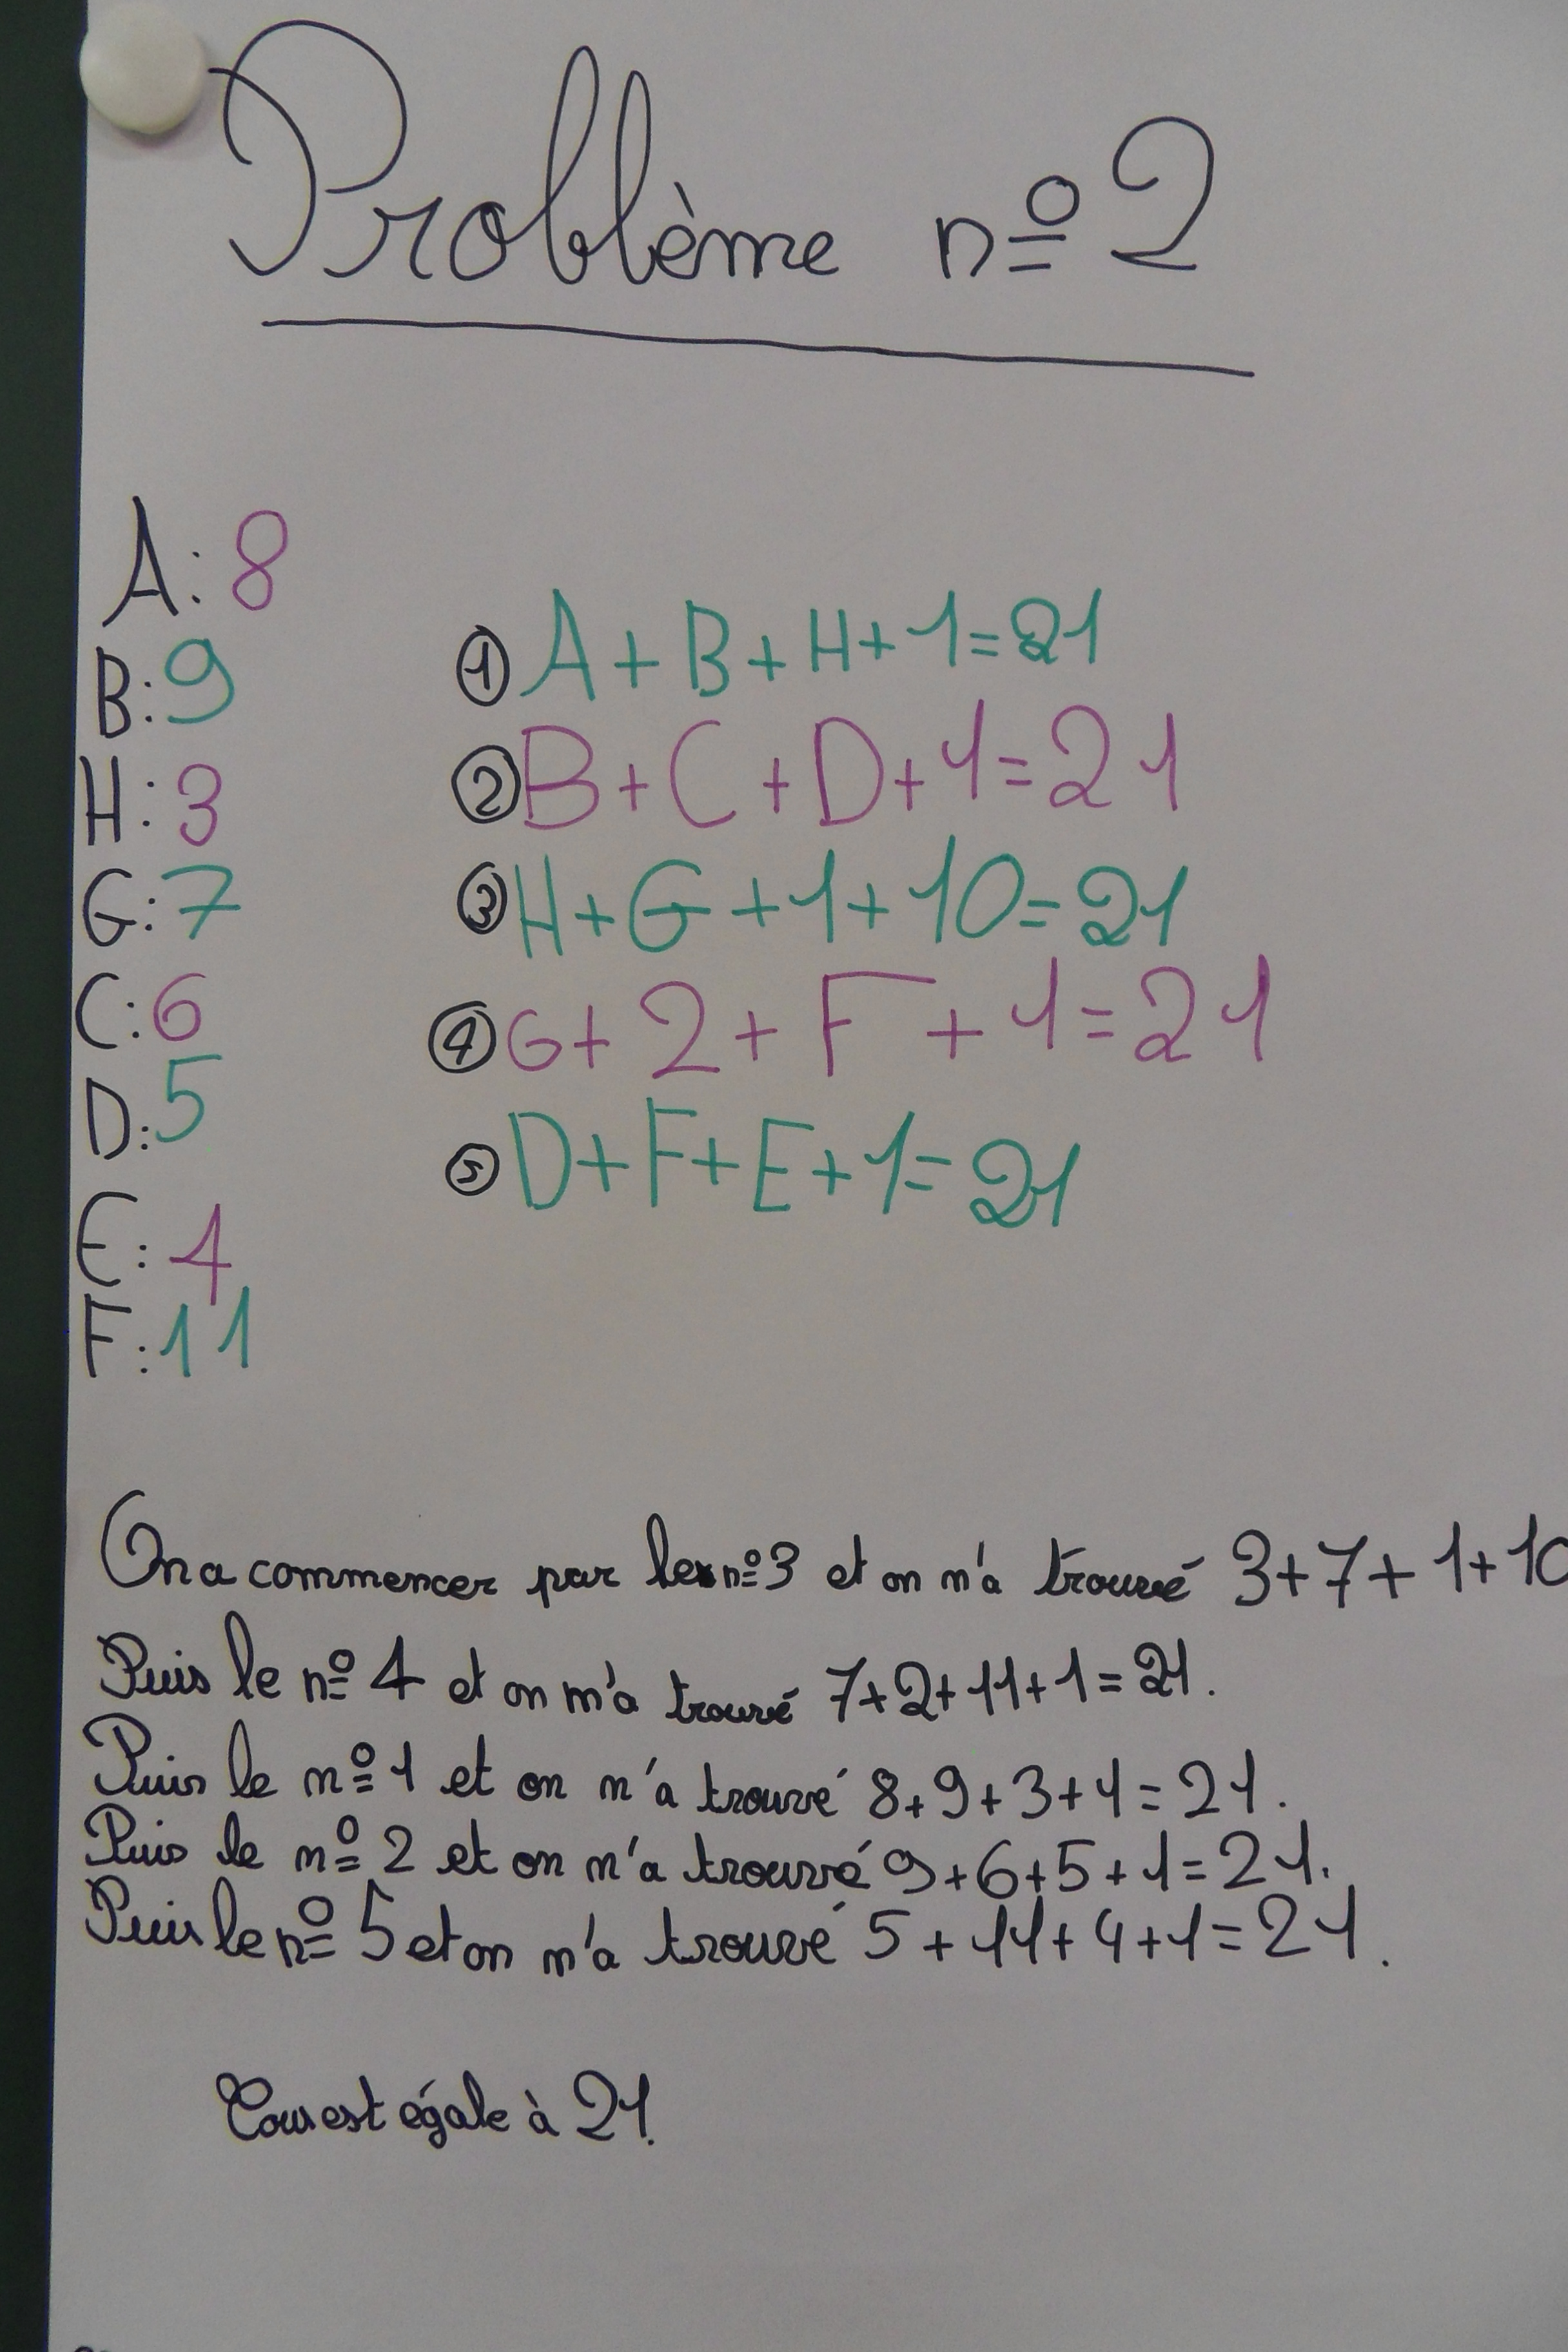 Problème n° 2
A: 8
B: 9
H: 3
G: 7
C: 6
D: 5
E: 4
F: 11
① A + B + H + 1 = 21
② B + C + D + 1 = 21
③ H + G + 1 + 10 = 21
④ G + 2 + F + 1 = 21
⑤ D + F + E + 1 = 21
On a commencer par le n° 3 et on n'a trouvé 3 + 7 + 1 + 10
Puis le n° 4 et on m'a trouvé 7 + 2 + 11 + 1 = 21.
Puis le n° 1 et on n'a trouvé 8 + 9 + 3 + 1 = 21.
Puis le n° 2 et on n'a trouvé 9 + 6 + 5 + 1 = 21.
Puis le n° 5 et on n'a trouvé 5 + 11 + 4 + 1 = 21.
Tous est égale à 21.